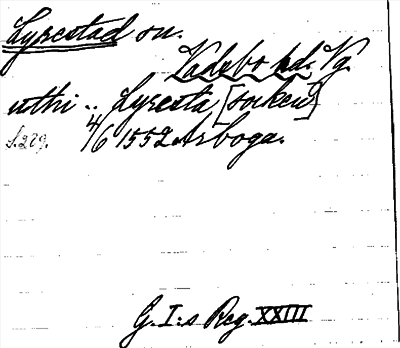 Lyrestad sn.
Vadsbo hd. Vg.
uthi .. Lyresta [socken]
S. 279. 4/6 1552 Arboga.
G. I:s Reg. XXIII